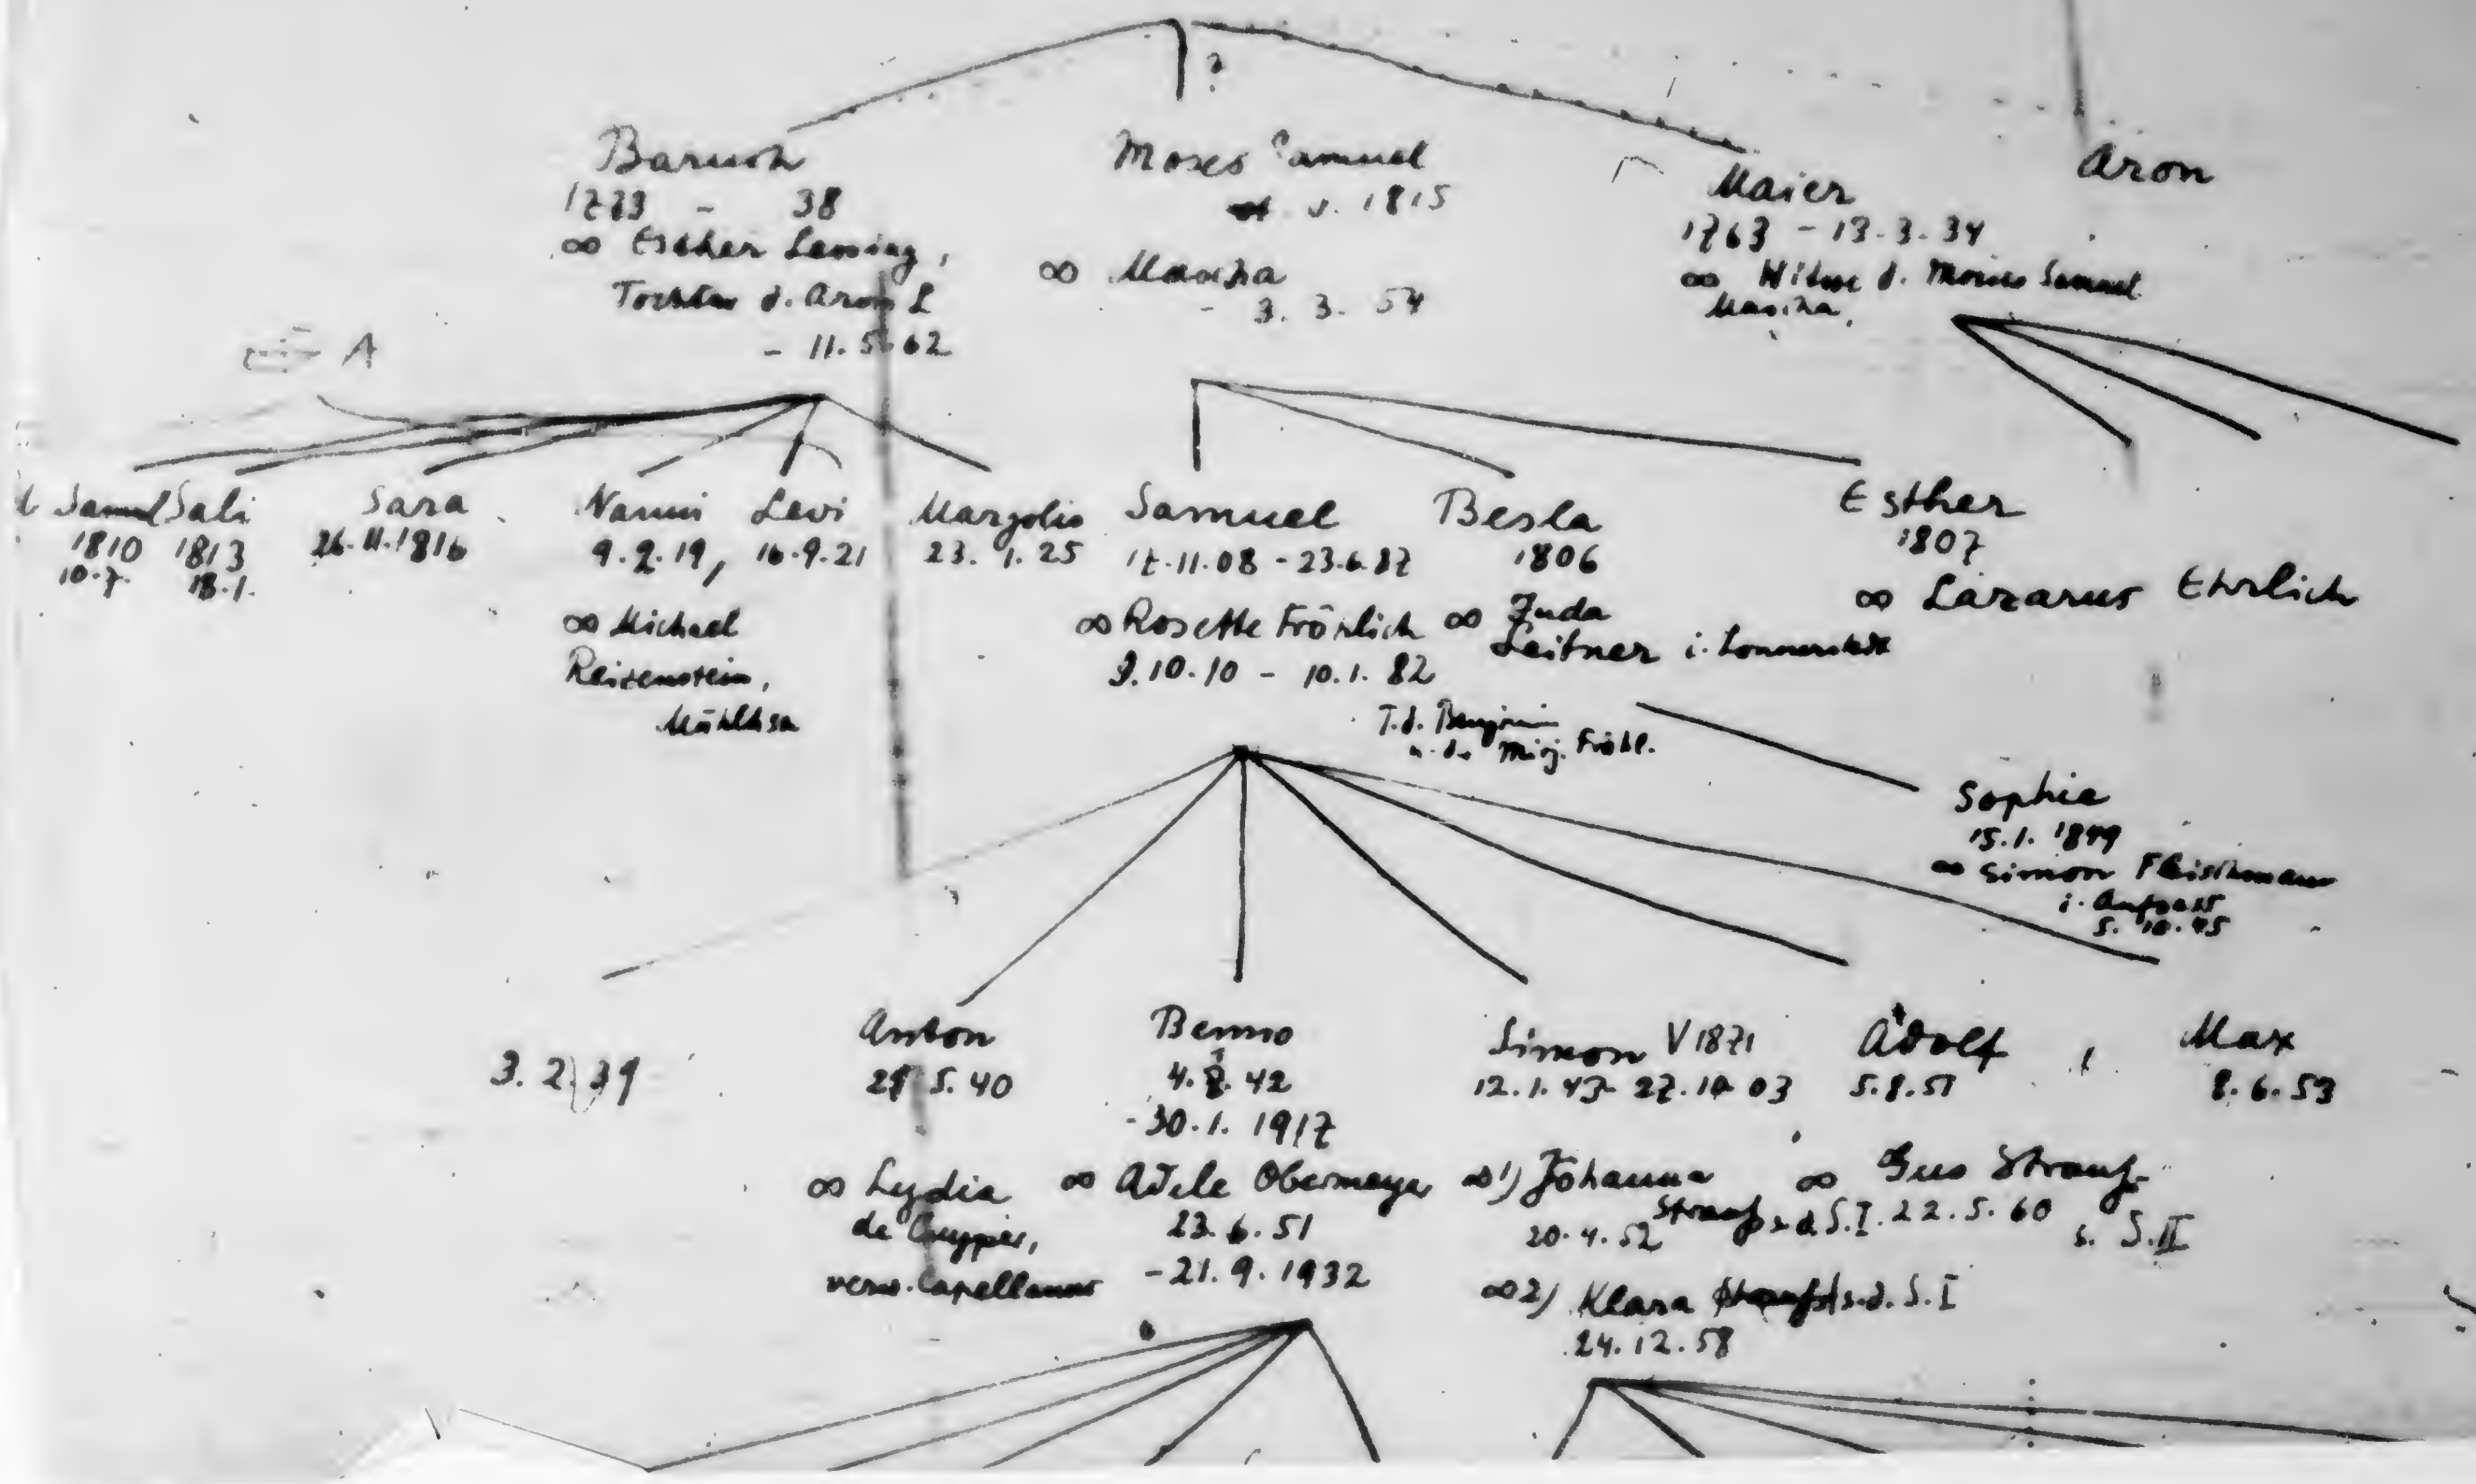 ?
Baruch
1773 - 38
∞ Esther Lessing,
Tochter d. Aron L
- 11.5.62
Moses Samuel
v. 1815
∞ Mascha
- 3. 3. 54
Maier
1763 - 13.3.34
∞ Witwe d. Moses Samuel
Mascha,
Aron
A
Samuel
1810
10.7.
Sali
1813
18.1.
Sara
26.11.1816
Nanni
9.2.19,
∞ Michael
Reizenstein,
Levi
16.9.21
Margolis
23. 1. 25
Samuel
17.11.08 - 23.6.87
∞ Rosette Fröhlich
9.10.10 - 10.1.82
T.d. Benjamin
u. d. Mirj. Fröhl.
Besla
1806
∞ Juda
Leitner i. Lonnerstadt
Esther
1807
∞ Lazarus Ehrlich
Sophie
15.1.1849
∞ Simon Fleischmann
i.
3. 2. 39
Anton
5.40
∞ Lydia
de
verw. Capellanus
Benno
42
-30.1.1917
∞ Adele Obermayer
23.6.51
-21.9.1932
Simon V 1871
12.1.43- 27.10 03
∞1) Johanna
Strauß s.d. S.I.
20.4.52
∞2) Klara s.d. S.I
24.12.58
Adolf
5.8.51
∞ Gus Strauß
22.5.60
s. S.II
Max
8.6.53